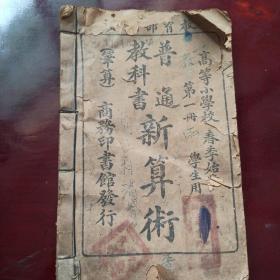 高等小學校春季始
第一冊
學生用
普通新算術
教科書
（筆算）
商務印書館發行